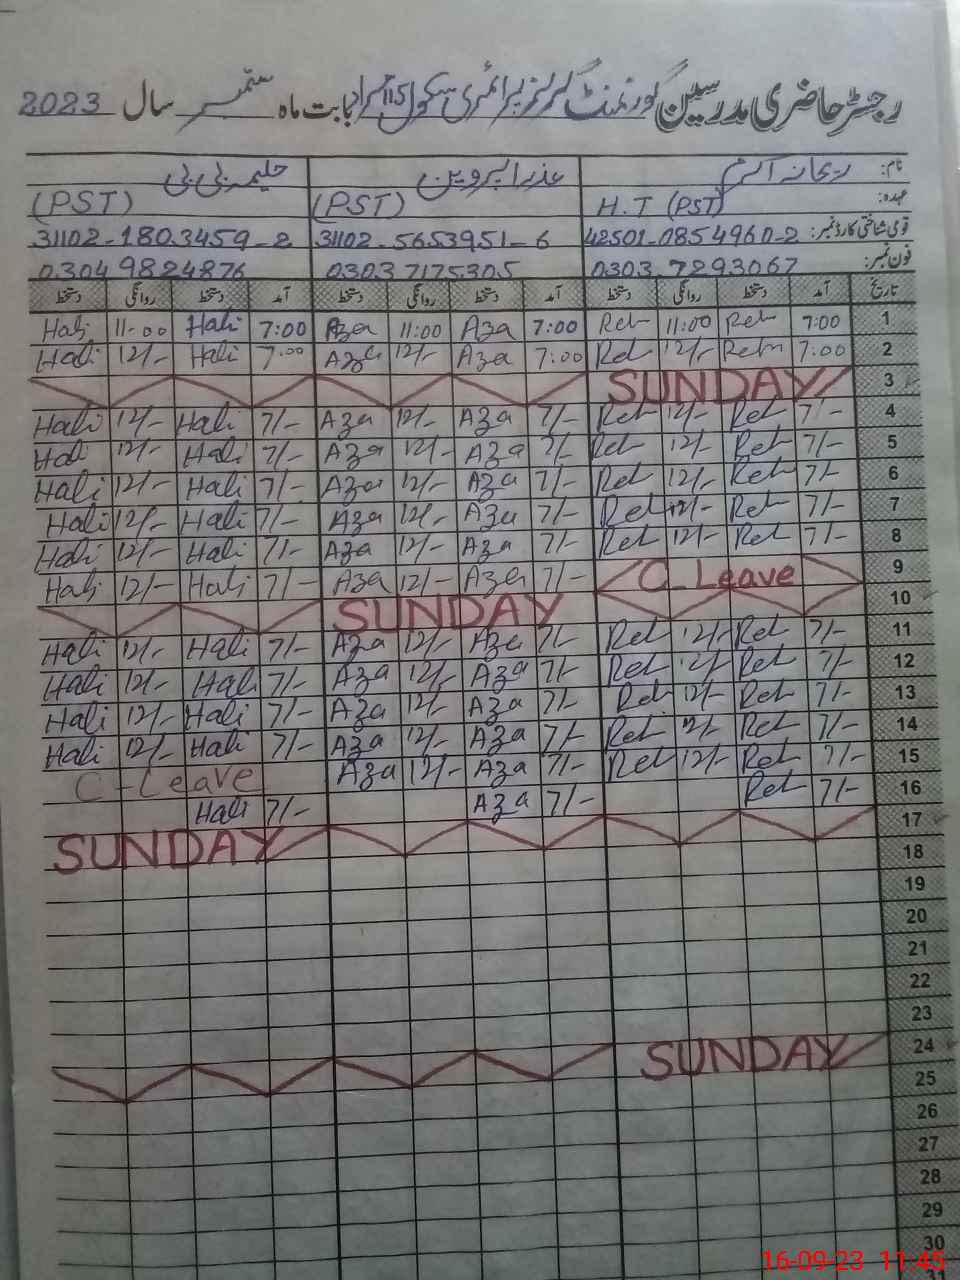 رجسٹر حاضری مدرسین گورنمنٹ گرلز پرائمری سکول 115 مراد بابت ماہ ستمبر سال 2023
نام: ریحانہ اکرم عذرا پروین حلیمہ بی بی
عہدہ: H.T (PST) (PST) (PST)
قومی شناختی کارڈ نمبر: 42501-0854960-2 31102-5653951-6 31102-1803459-2
فون نمبر: 0303-7293067 0303 7175305 0304 9824876
تاریخ آمد دستخط روانگی دستخط آمد دستخط روانگی دستخط آمد دستخط روانگی دستخط
1 7:00 Reh 11:00 Reh 7:00 Aza 11:00 Aza 7:00 Hali 11-00 Hali
2 7:00 Reh 12/- Reh 7:00 Aza 12/- Aza 7:00 Hali 12/- Hali
3 SUNDAY
4 7/- Reh 12/- Reh 7/- Aza 12/- Aza 7/- Hali 12/- Hali
5 7/- Reh 12/- Reh 7/- Aza 12/- Aza 7/- Hali 12/- Hali
6 7/- Reh 12/- Reh 7/- Aza 12/- Aza 7/- Hali 12/- Hali
7 7/- Reh 12/- Reh 7/- Aza 12/- Aza 7/- Hali 12/- Hali
8 7/- Reh 12/- Reh 7/- Aza 12/- Aza 7/- Hali 12/- Hali
9 C_Leave 7/- Aza 12/- Aza 7/- Hali 12/- Hali
10 SUNDAY
11 7/- Reh 12/- Reh 7/- Aza 12/- Aza 7/- Hali 12/- Hali
12 7/- Reh 12/- Reh 7/- Aza 12/- Aza 7/- Hali 12/- Hali
13 7/- Reh 12/- Reh 7/- Aza 12/- Aza 7/- Hali 12/- Hali
14 7/- Reh 12/- Reh 7/- Aza 12/- Aza 7/- Hali 12/- Hali
15 7/- Reh 12/- Reh 7/- Aza 12/- Aza C-Leave
16 7/- Reh 7/- Aza 7/- Hali
17 SUNDAY
18
19
20
21
22
23
24 SUNDAY
25
26
27
28
29
30
16-09-23 11:45